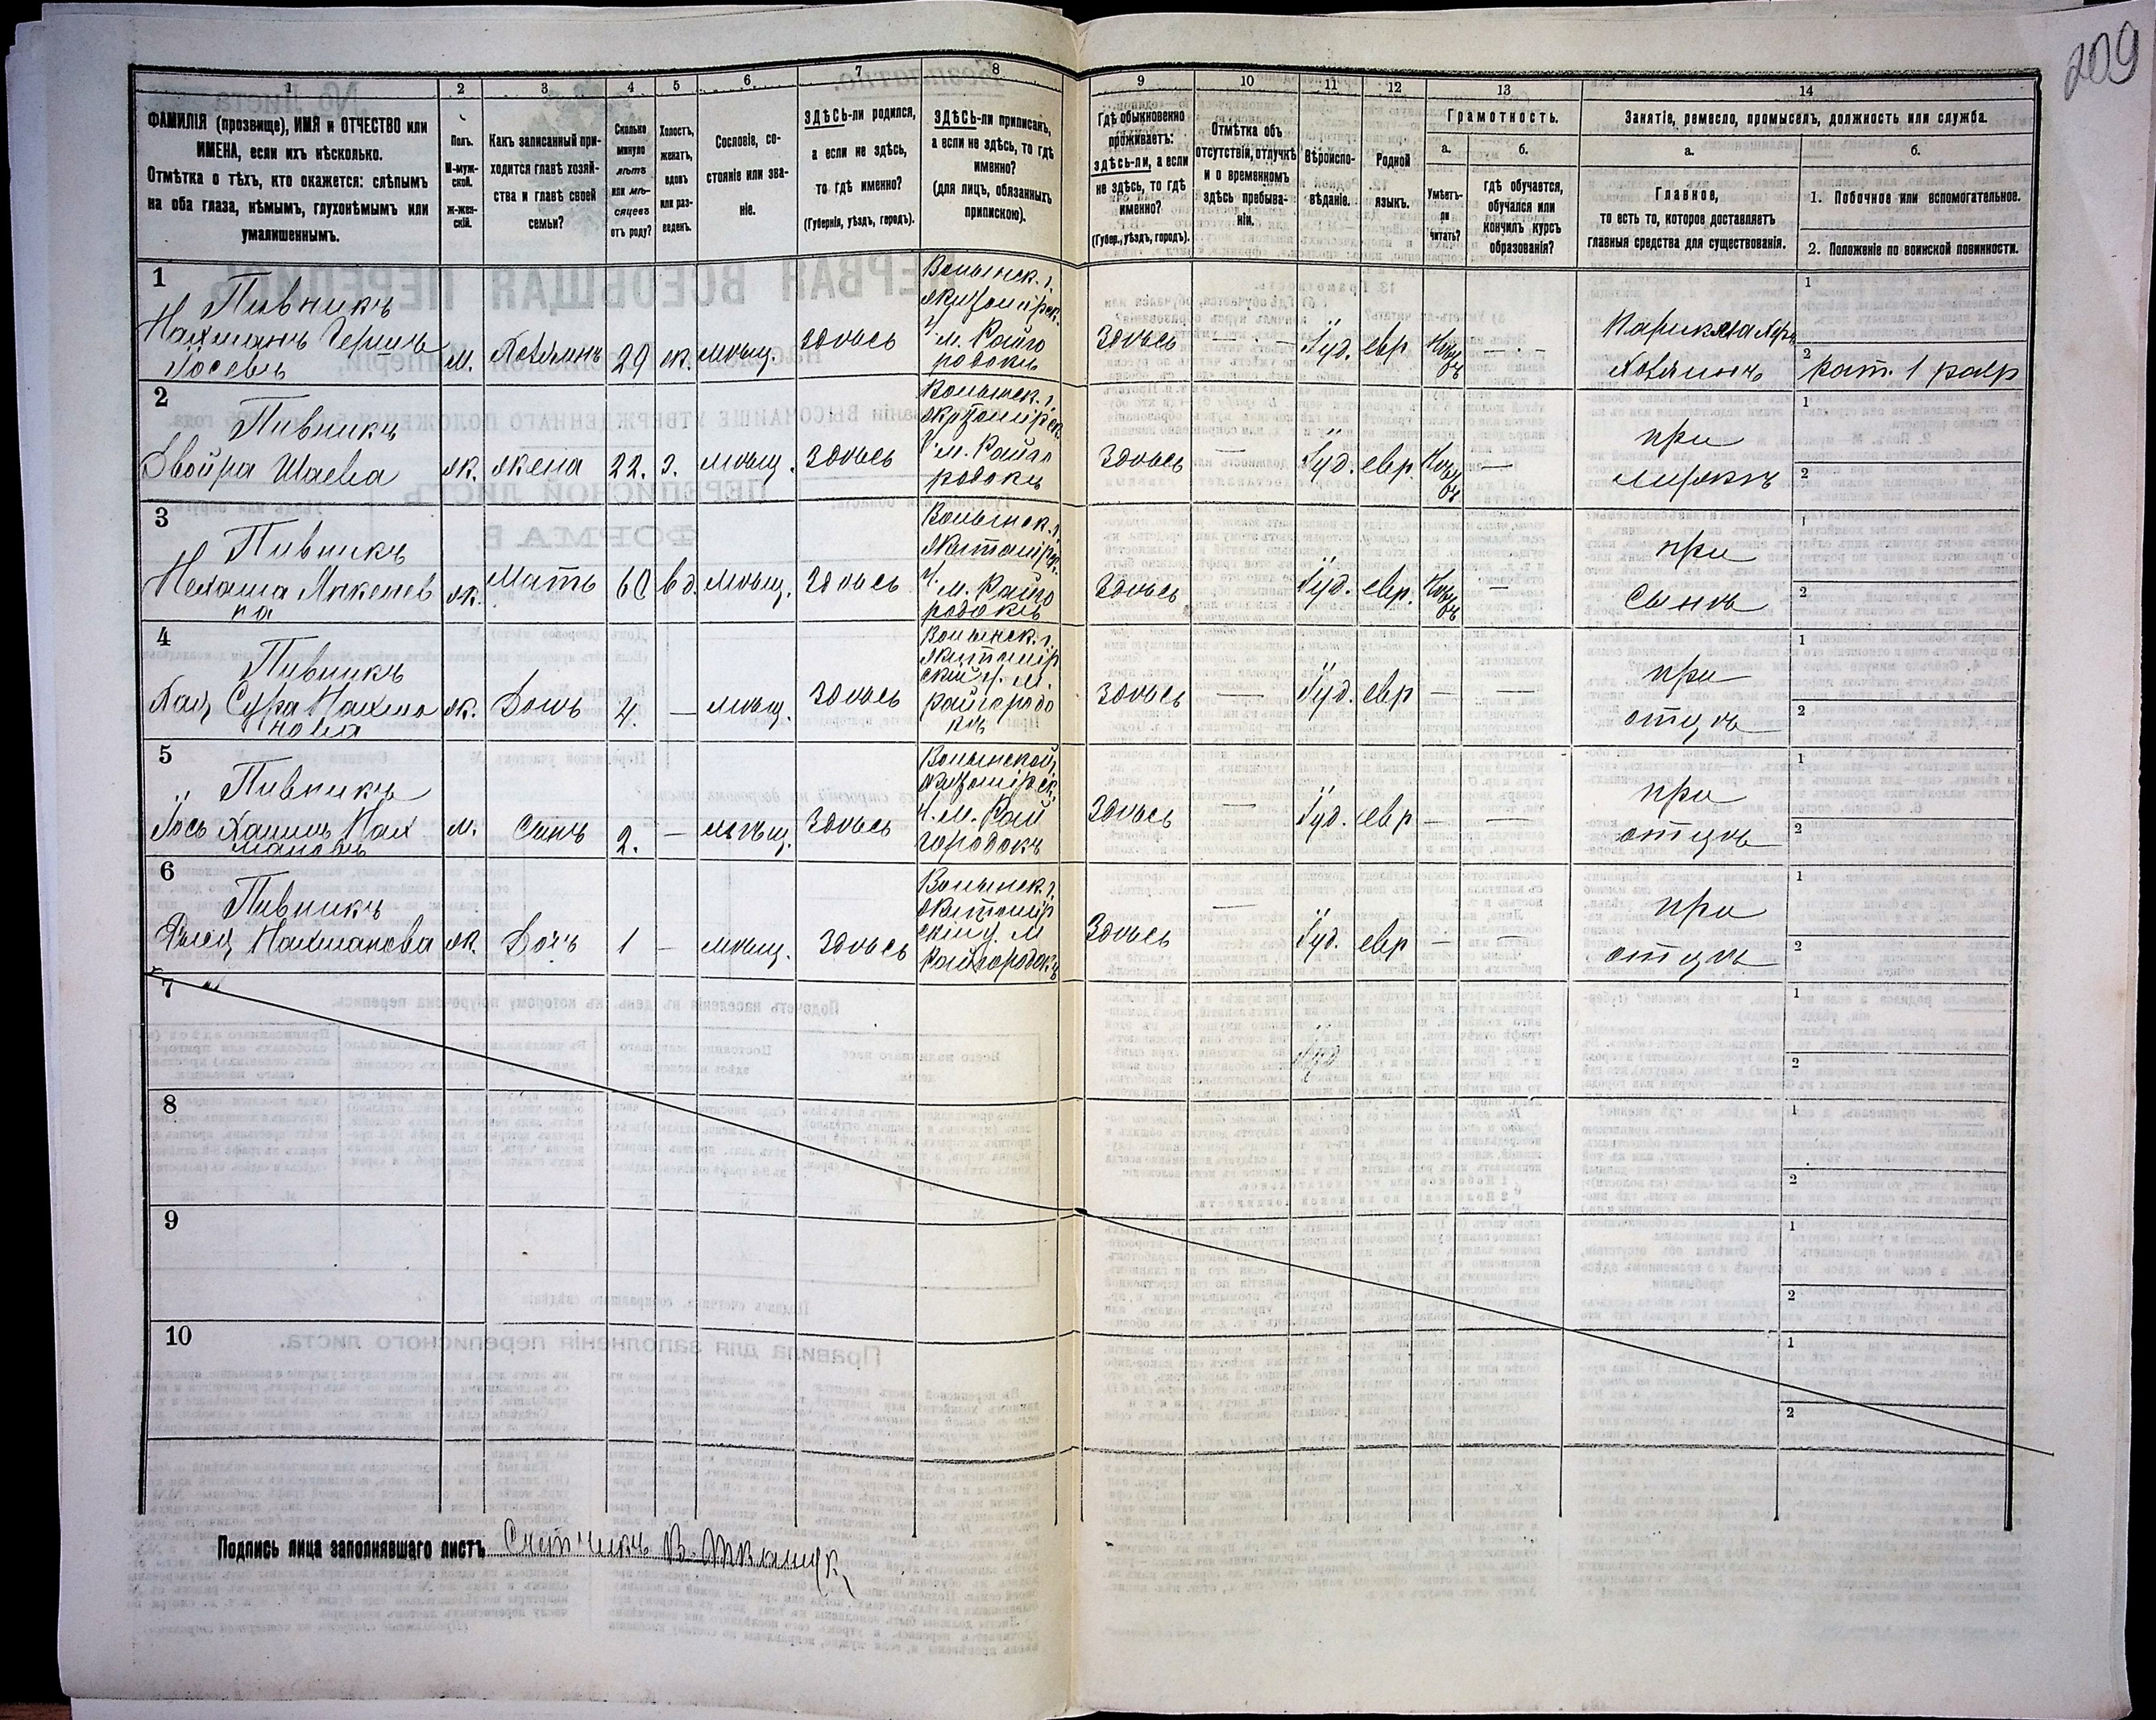 209
1
2
3
4
5
6
7
8
9
10
11
12
13
14
ФАМИЛІЯ (прозвище), ИМЯ и ОТЧЕСТВО или
ИМЕНА, если ихъ нѣсколько.
Отмѣтка о тѣхъ, кто окажется: слѣпымъ
на оба глаза, нѣмымъ, глухонѣмымъ или
умалишеннымъ.
Полъ.
М-муж-
ской.
ж-жен-
скій.
Какъ записанный при-
ходится главѣ хозяй-
ства и главѣ своей
семьи?
Сколько
минуло
лѣтъ
или мѣ-
сяцевъ
отъ роду?
Холостъ,
женатъ,
вдовъ
или раз-
веденъ.
Сословіе, со-
стояніе или зва-
ніе.
ЗДѢСЬ-ли родился,
а если не здѣсь,
то гдѣ именно?
(Губернія, уѣздъ, городъ).
ЗДѢСЬ-ли приписанъ,
а если не здѣсь, то гдѣ
именно?
(для лицъ, обязанныхъ
припискою).
Гдѣ обыкновенно
проживаетъ:
здѣсь-ли, а если
не здѣсь, то гдѣ
именно?
(Губер., уѣздъ, городъ).
Отмѣтка объ
отсутствіи, отлучкѣ
и о временномъ
здѣсь пребыва-
ніи.
Вѣроиспо-
вѣданіе.
Родной
языкъ.
Грамотность.
а.
Умѣетъ-
ли
читать?
б.
гдѣ обучается,
обучался или
кончилъ курсъ
образованія?
Занятіе, ремесло, промыселъ, должность или служба.
а.
Главное,
то есть то, которое доставляетъ
главныя средства для существованія.
б.
1. Побочное или вспомогательное.
2. Положеніе по воинской повинности.
1
Пивникъ
Нахманъ Герш
Іосевъ
м. Хозяинъ 29 ж. мѣщ. здѣсь
Волынск. г.
житомірск.
у. м. Райго
родокъ
Здѣсь — Іуд. евр. —
Хозяинъ
1
2 рат. 1 разр
2
Пивникъ
Двойра Шаева
ж. жена 22. з. мѣщ. здѣсь
Волынск. г.
житомірск.
у. м. Райго
родокъ
Здѣсь — Іуд. евр. —
при
мужѣ
1
2
3
Пивникъ
Нехама Янкелев
на
ж. Мать 60 вд. мѣщ. здѣсь
Волынск. г.
житомірск.
у. м. Райго
родокъ
Здѣсь Іуд. евр. —
при
сынѣ
1
2
4
Пивникъ
Сура Нахма
нова
ж. Дочь 4. — мѣщ. здѣсь
Волынск. г.
житомір
скій у. м.
райгородо
къ
Здѣсь — Іуд. евр — —
при
отцѣ
1
2
5
Пивникъ
Іось Хаимъ Нах
мановъ
м. сынъ 2. — мѣщ. здѣсь
Волынской г.
житомірск.
у. м. Рай
городокъ
Здѣсь — Іуд. евр — —
при
отцѣ
1
2
6
Пивникъ
Нахманова
ж. Дочь 1 — мѣщ. здѣсь
Волынск. г.
житомір
ск. у. м
Райгородокъ
Здѣсь — Іуд. евр — —
при
отцѣ
1
2
7
1
2
8
1
2
9
1
2
10
1
2
Подпись лица заполнявшаго листъ Счетчикъ В.